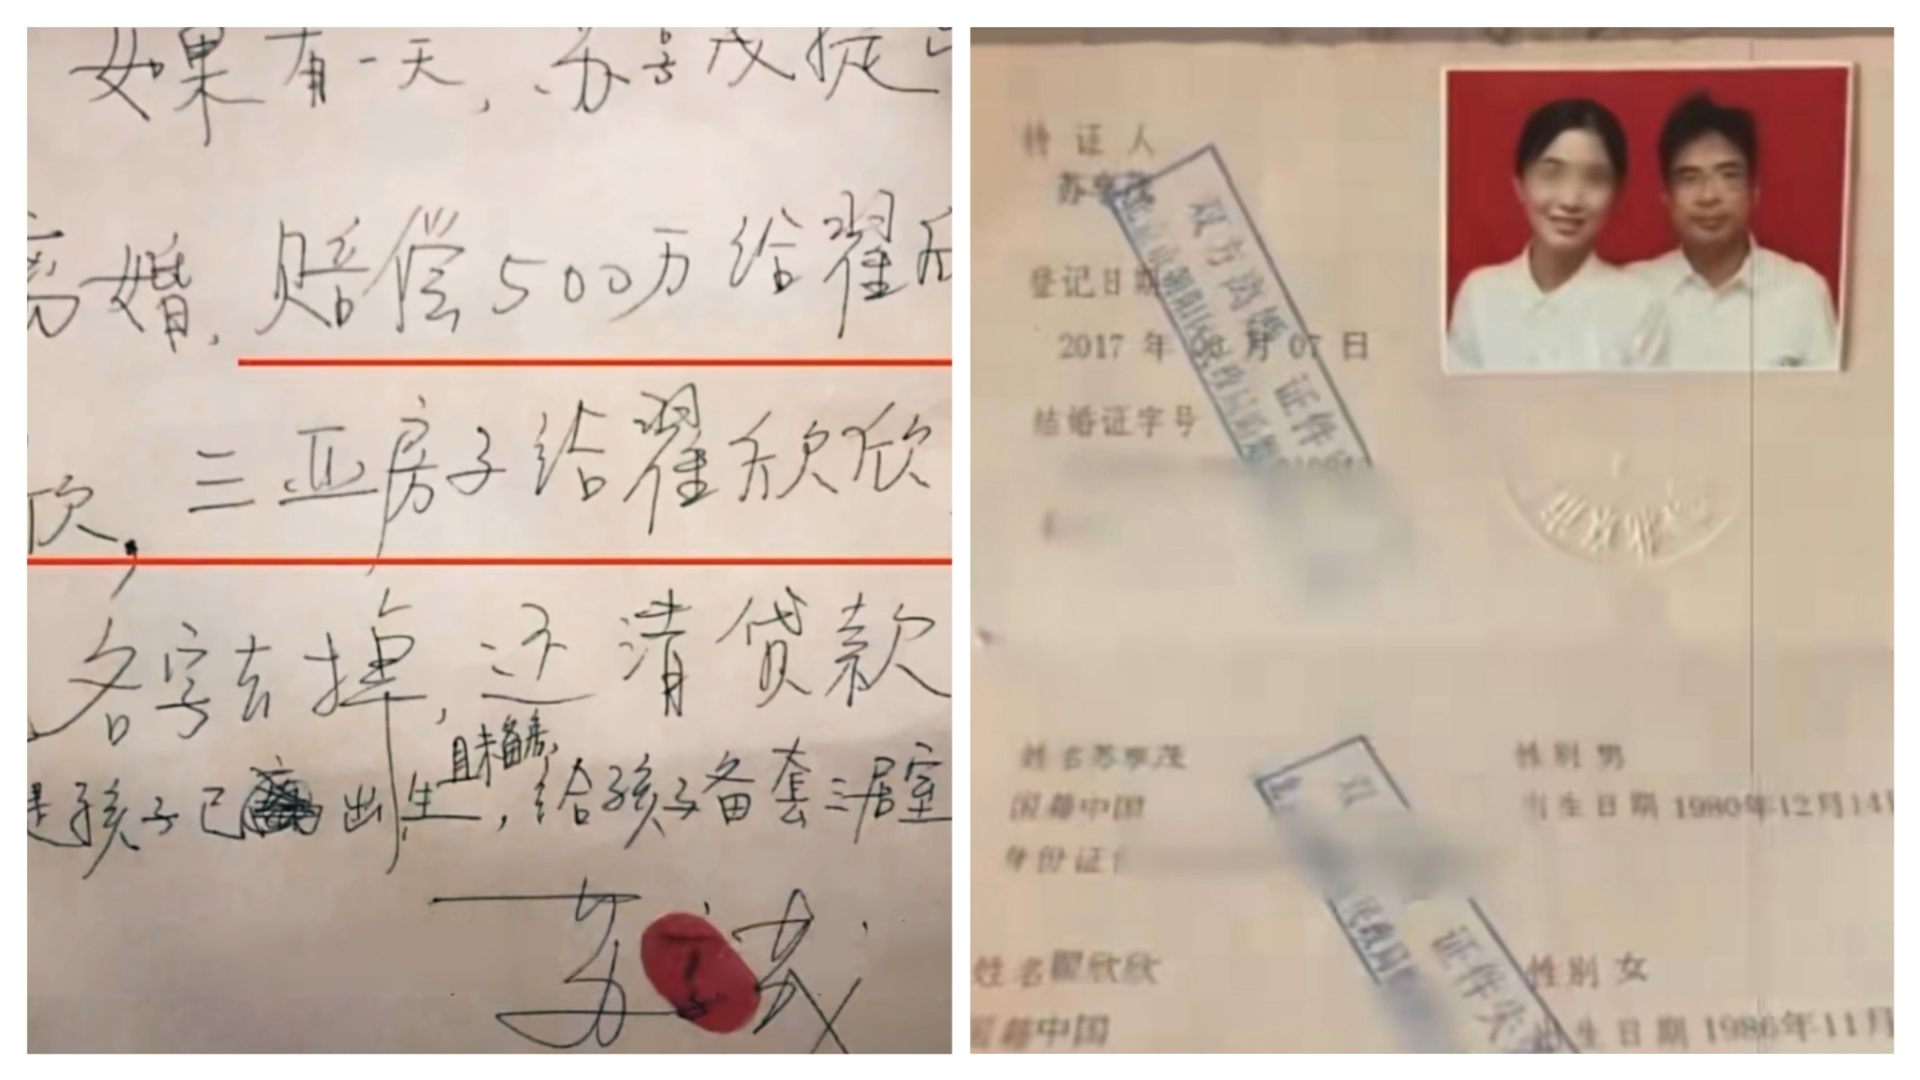 如果有一天,苏享茂提出
离婚,赔偿500万给翟欣
欣,三亚房子给翟欣欣
名字去掉,还清贷款
且未备房,
是孩子已出生,给孩子备套三居室
苏享茂
持证人
苏享茂
登记日期
2017 年 06 月 07 日
结婚证字号
双方离婚 证件
姓名苏享茂
性别 男
国籍中国
出生日期 1980年12月14
身份证
双
证件失
姓名翟欣欣
性别 女
国籍中国
出生日期 1986年11月